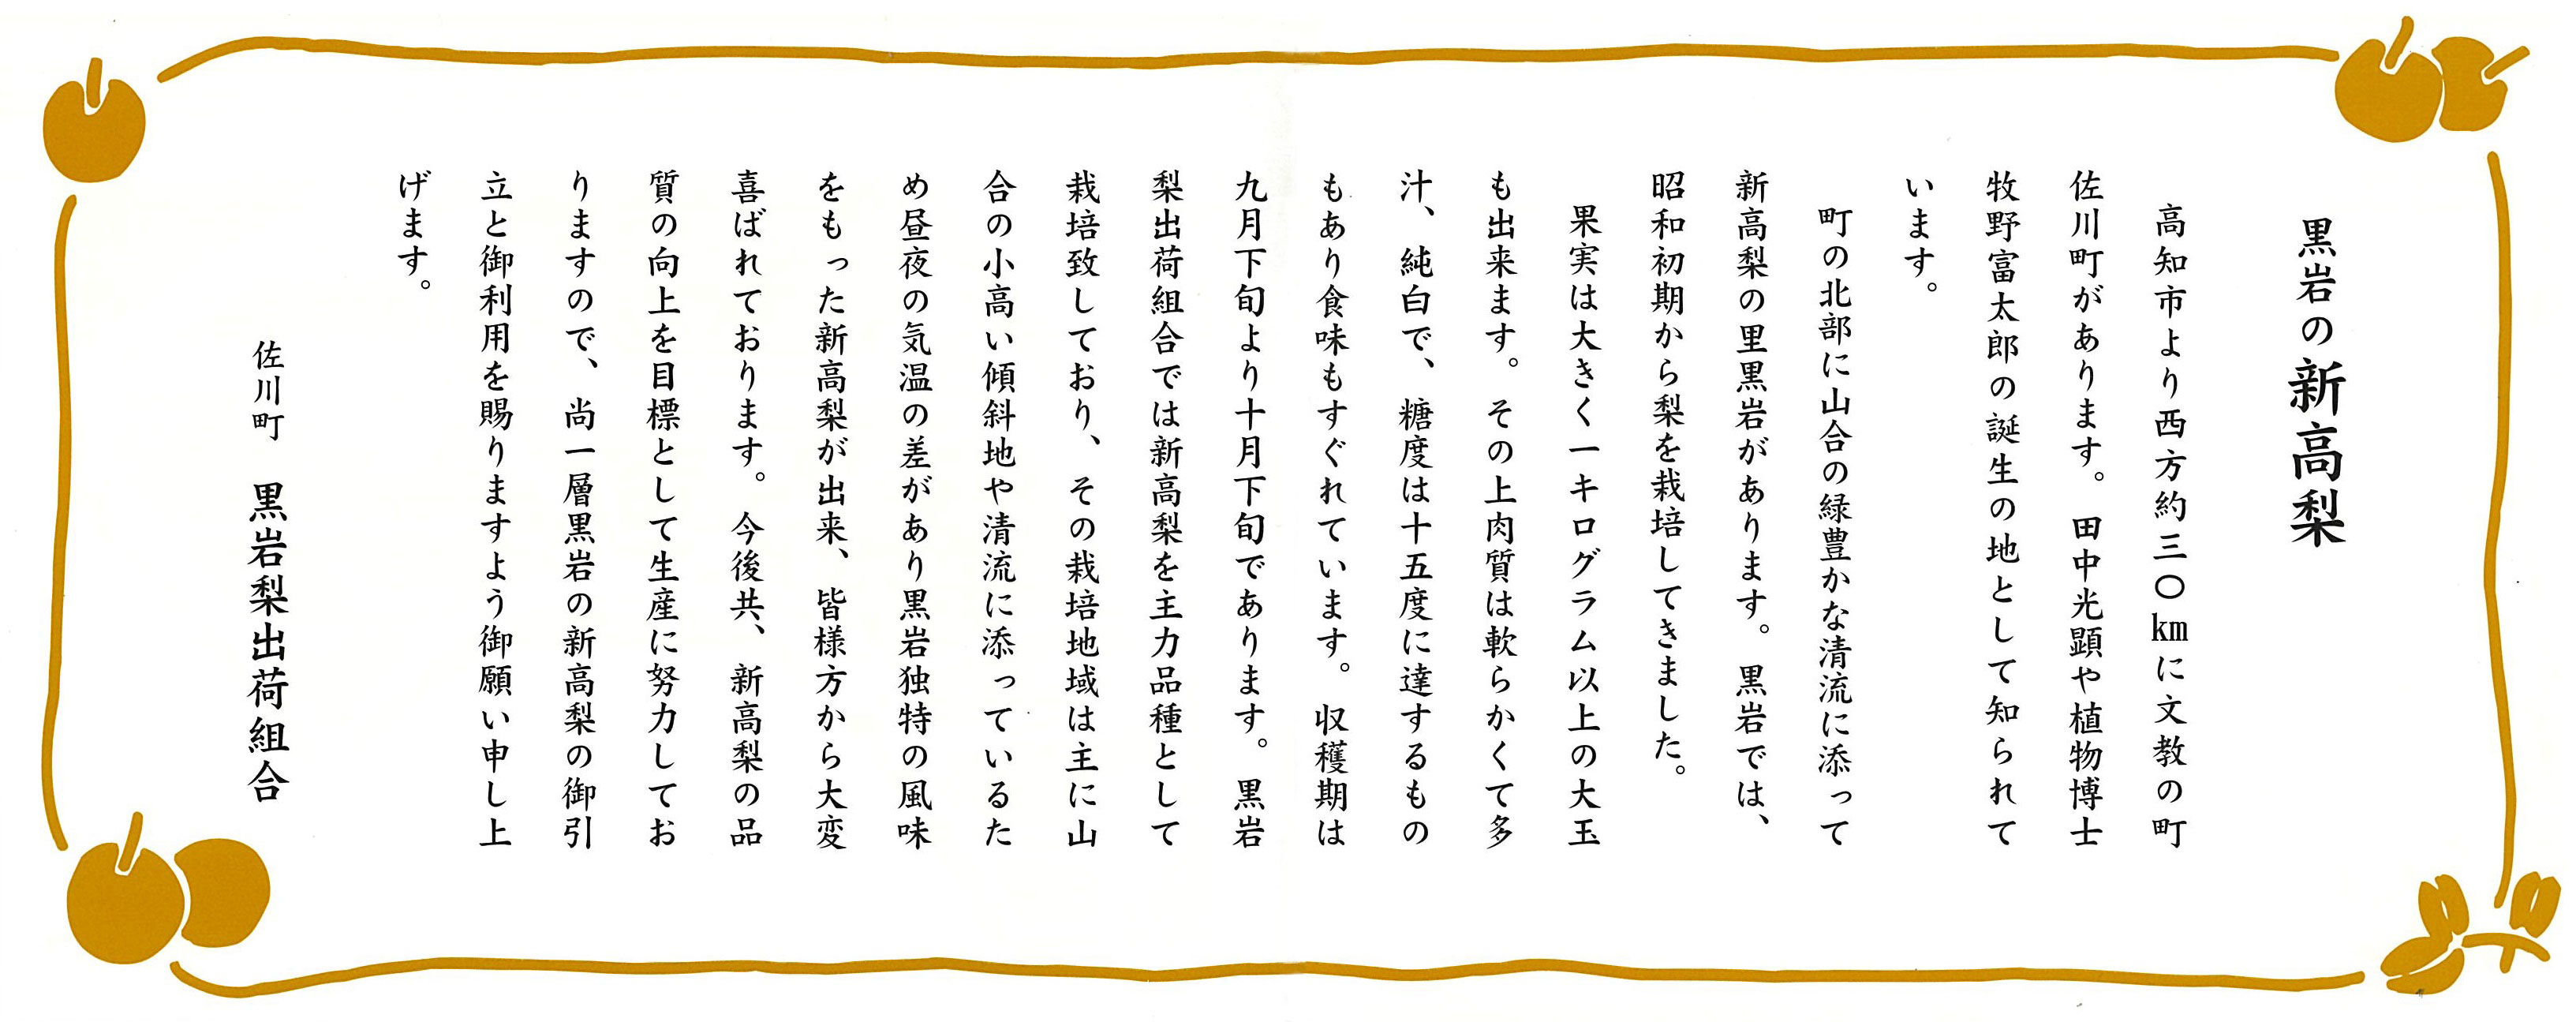 黒岩の新高梨
高知市より西方約三〇kmに文教の町
佐川町があります。田中光顕や植物博士
牧野富太郎の誕生の地として知られて
います。
町の北部に山合の緑豊かな清流に添って
新高梨の里黒岩があります。黒岩では、
昭和初期から梨を栽培してきました。
果実は大きく一キログラム以上の大玉
も出来ます。その上肉質は軟らかくて多
汁、純白で、糖度は十五度に達するもの
もあり食味もすぐれています。収穫期は
九月下旬より十月下旬であります。黒岩
梨出荷組合では新高梨を主力品種として
栽培致しており、その栽培地域は主に山
合の小高い傾斜地や清流に添っているた
め昼夜の気温の差があり黒岩独特の風味
をもった新高梨が出来、皆様方から大変
喜ばれております。今後共、新高梨の品
質の向上を目標として生産に努力してお
りますので、尚一層黒岩の新高梨の御引
立と御利用を賜りますよう御願い申し上
げます。
佐川町　黒岩梨出荷組合